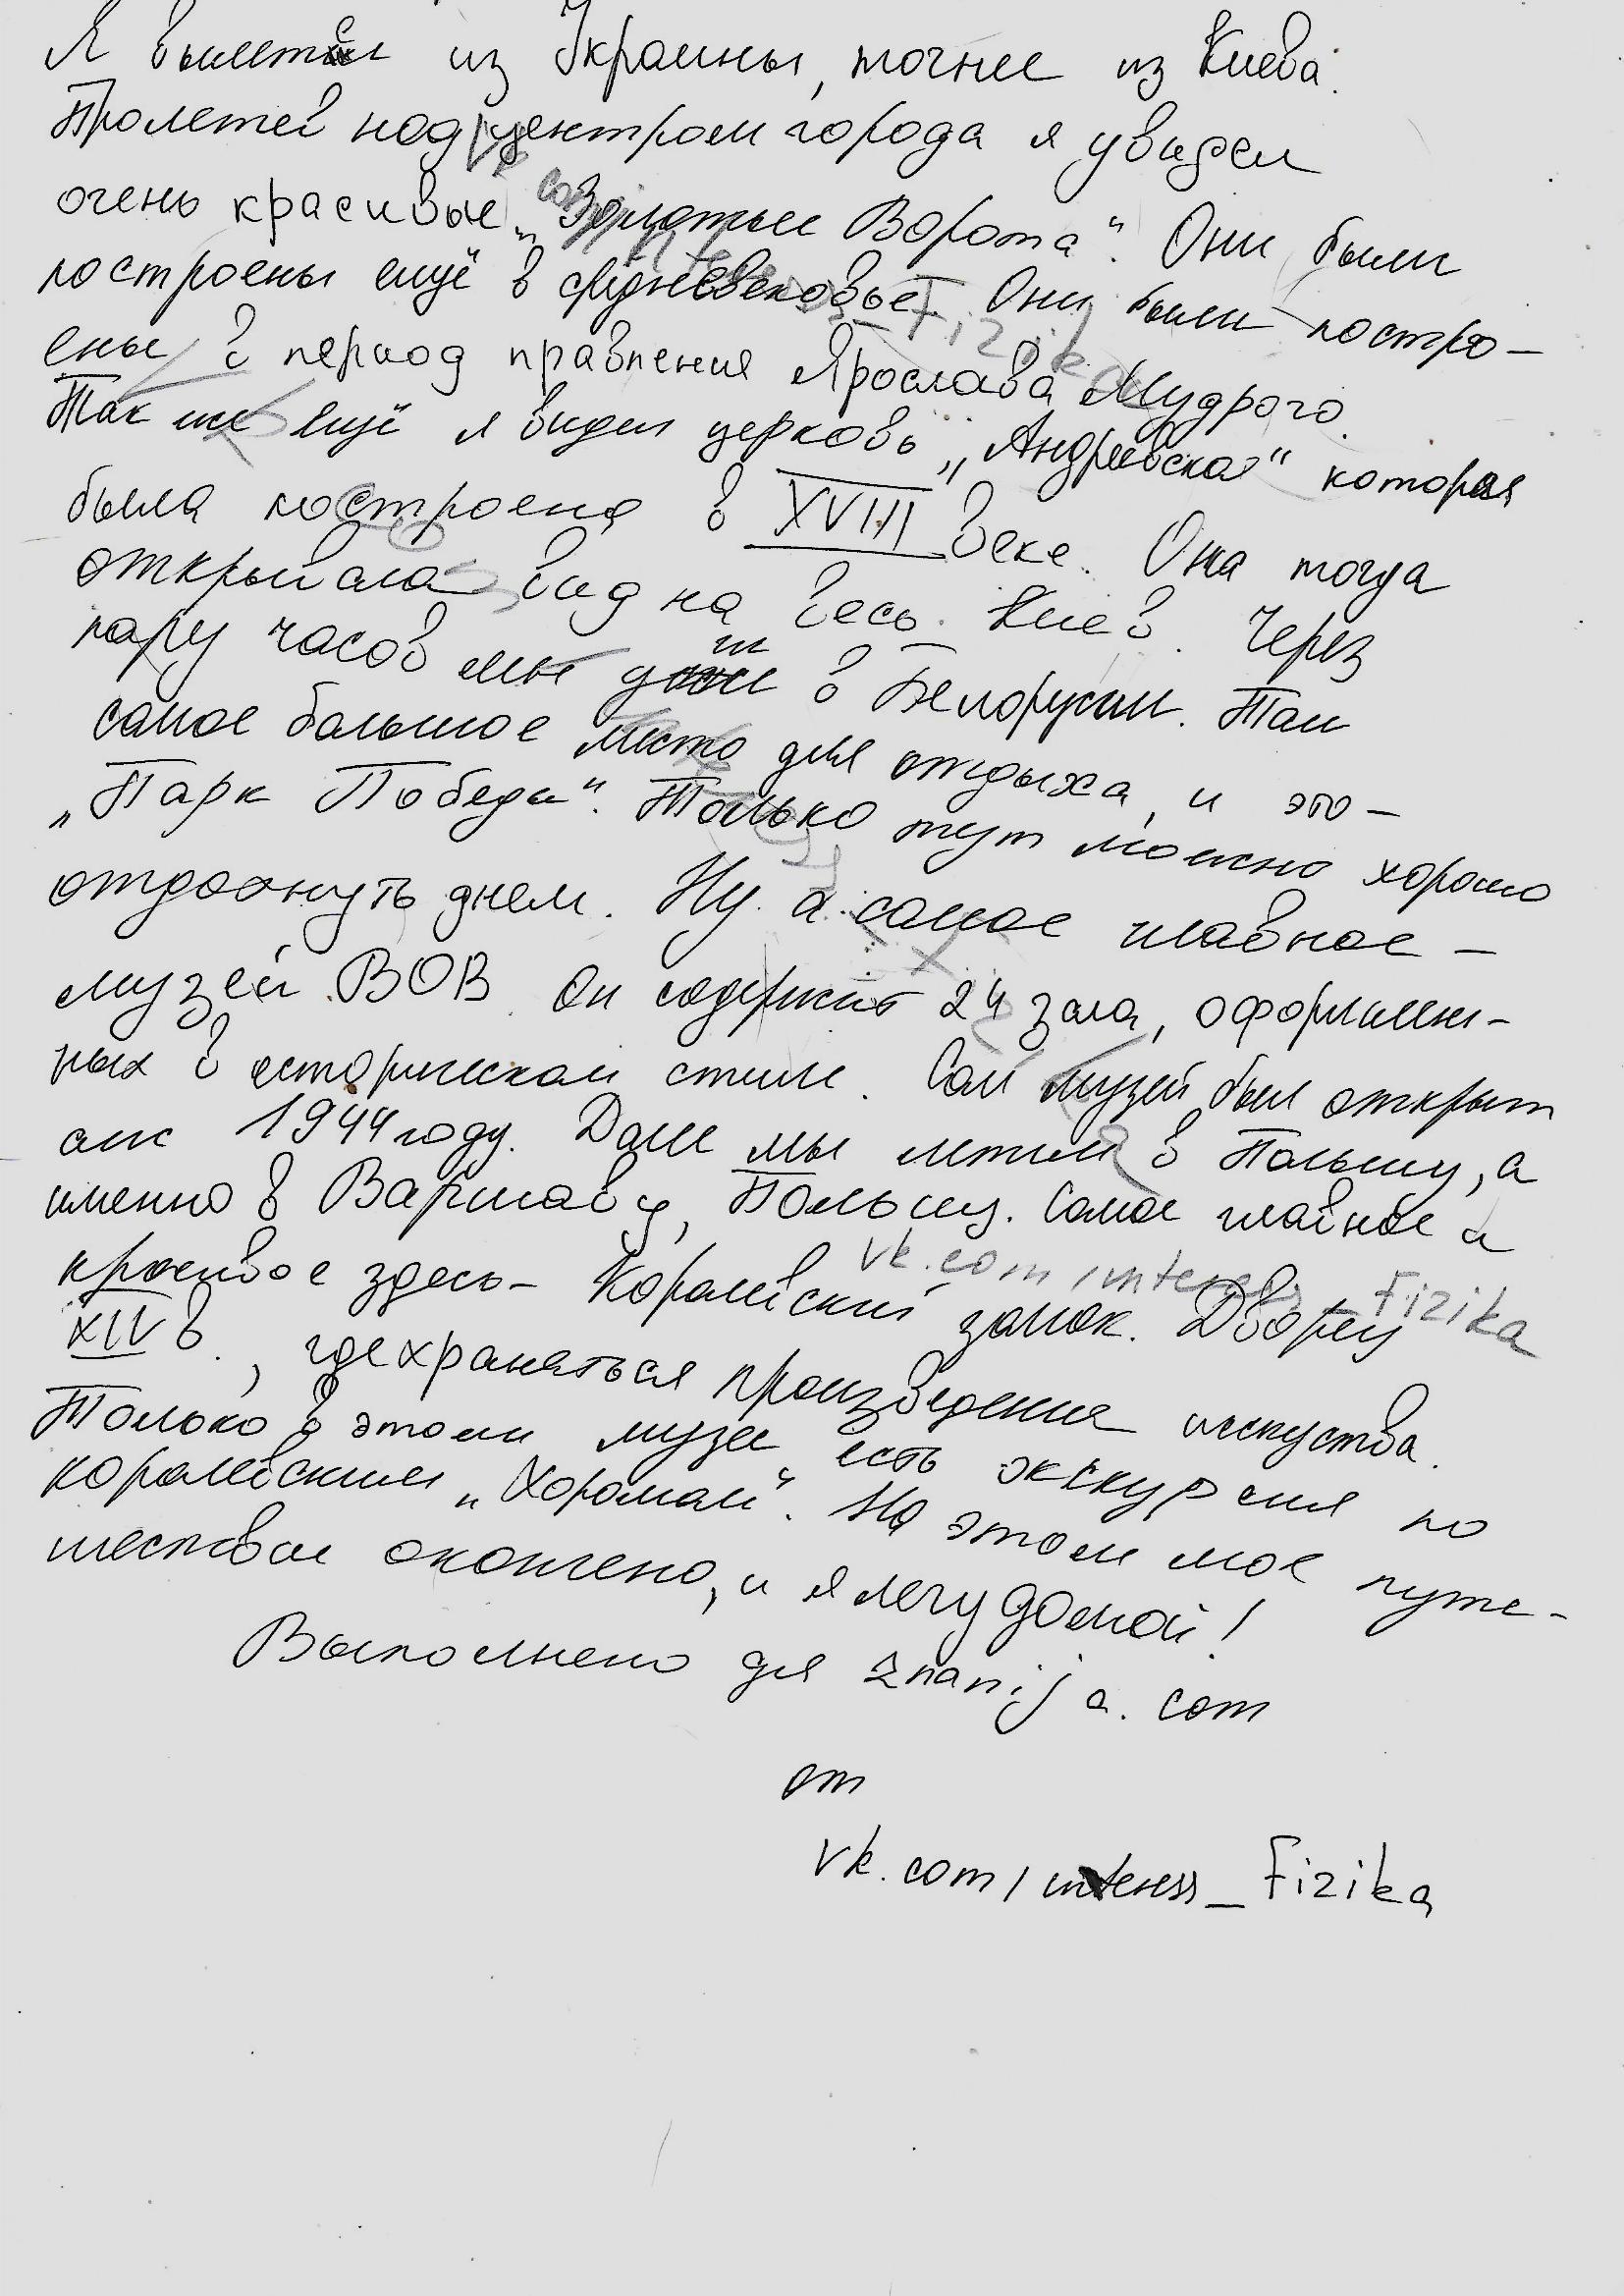 Я вылетел из Украины, точнее из Киева.
Пролетев над центром города я увидел
очень красивые „Золотые Ворота“. Они были
построены ещё в средневековье. Они были постро-
ены в период правления Ярослава Мудрого.
Так же ещё я видел церковь „Андреевская“ которая
была построена в XVIII веке. Она тогда
открывала вид на весь Киев. Через
пару часов мы в Белорусии. Там
самое большое место для отдыха, и это-
„Парк Победы“. Только тут можно хорошо
отдохнуть днем. Ну а самое главное -
музей ВОВ. Он содержит 24 зала, оформлен-
ных в историческом стиле. Сам музей был открыт
аж 1944 году. Дале мы летим в Польшу, а
именно в Варшаву, Польшу. Самое главное и
красивое здесь- Королевский замок. Дворец
XIV в., где храняться произведения искуства.
Только в этом музее есть экскурсия по
королевским „Хоромам“. На этом мое путе-
шествие окончено, и я лечу домой!
Выполнено для znanija.com
от
vk.com/interess_Fizika
vk.com/interess_Fizika